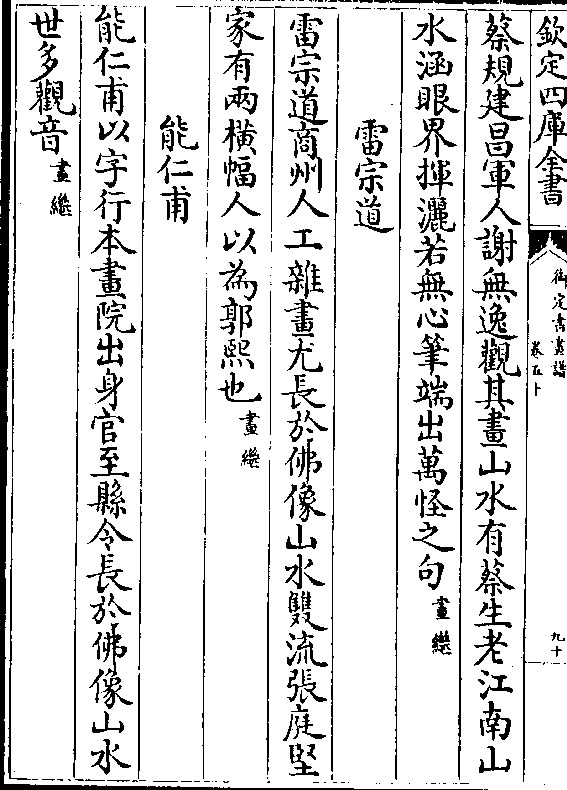 欽定四庫全書
御定書畫譜
卷五十
九十
蔡規建昌軍人謝無逸觀其畫山水有蔡生老江南山
水涵眼界揮灑若無心筆端出萬怪之句畫繼
雷宗道
雷宗道商州人工雜畫尤長於佛像山水雙流張庭堅
家有兩橫幅人以為郭熙也畫繼
能仁甫
能仁甫以字行本畫院出身官至縣令長於佛像山水
世多觀音畫繼